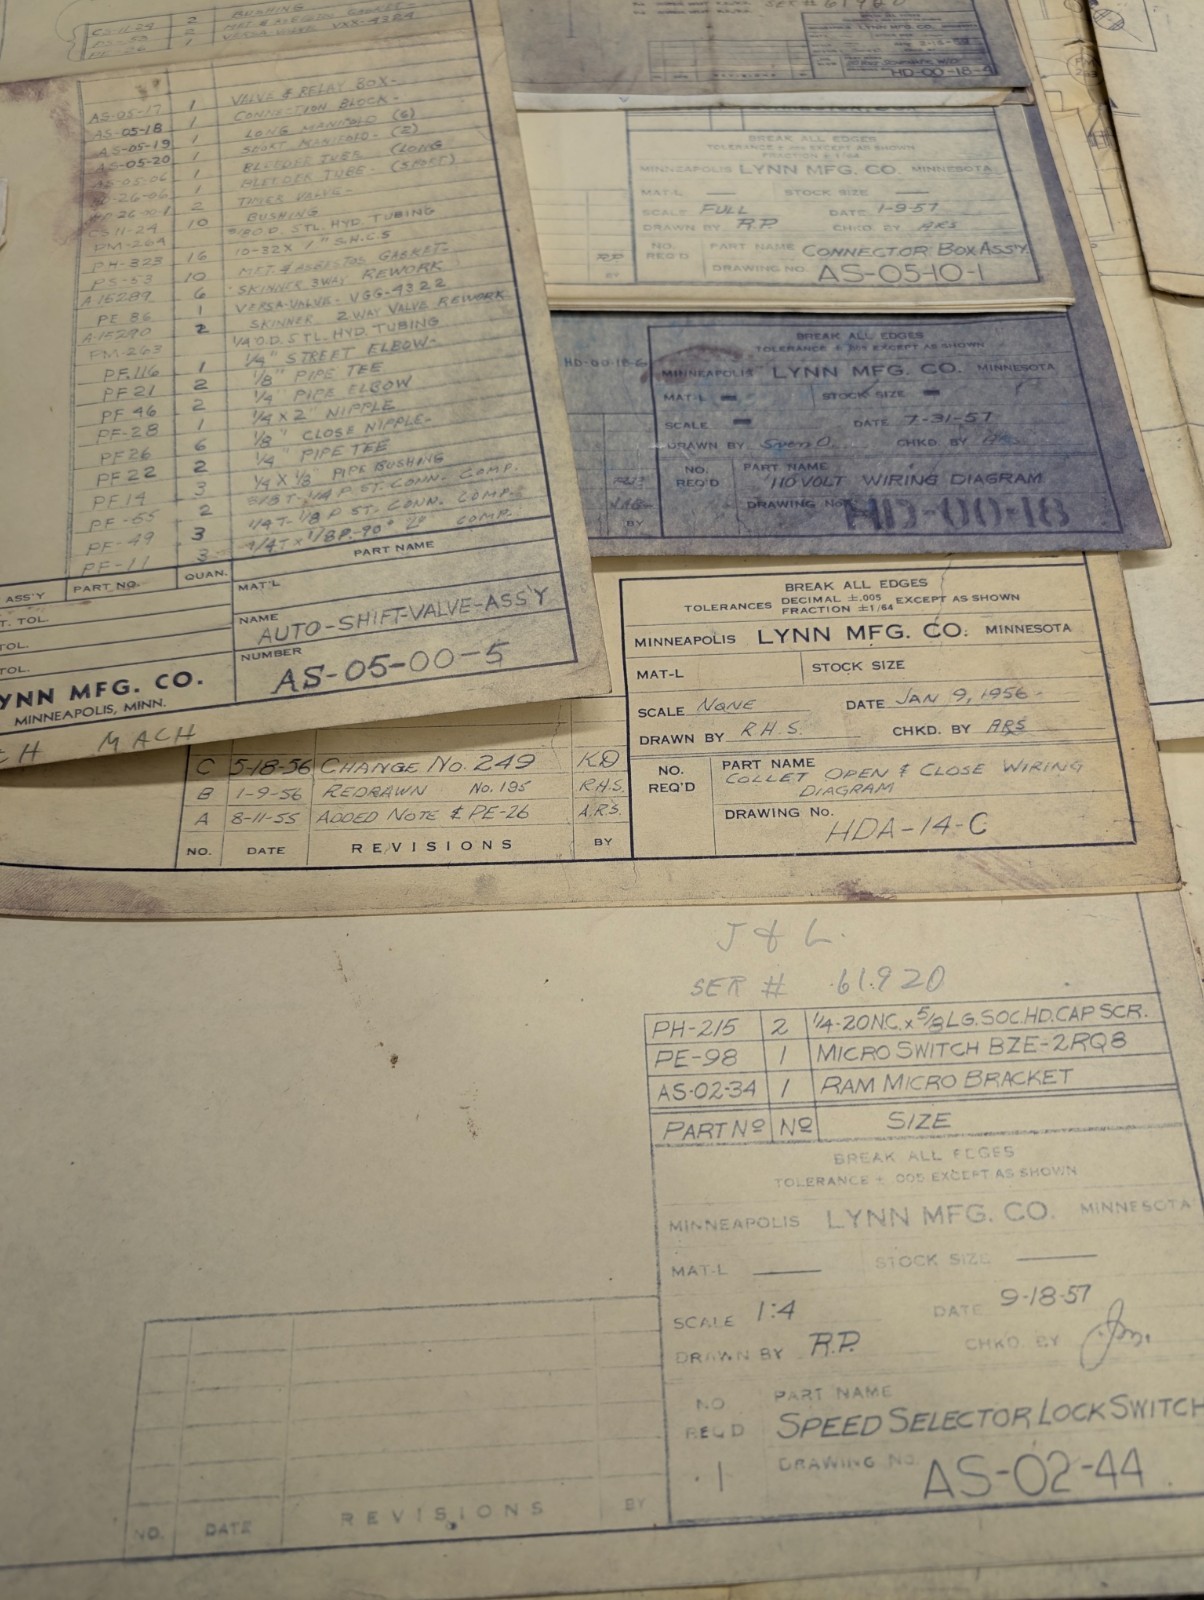 BUSHING
CS-11-24 2
2
1 VERSA-VALVE VXX-4324
AS-05-17 1 VALVE & RELAY BOX-
AS-05-18 1 CONNECTION BLOCK-
AS-05-19 1 LONG MANIFOLD (6)
AS-05-20 1 SHORT MANIFOLD- (2)
1 BLEEDER TUBE (LONG)
1 BLEEDER TUBE- (SHORT)
2 TIMER VALVE-
CS 11-24 10 BUSHING
DM-264 O.D. STL. HYD. TUBING
PH-323 16 10-32X 1" S.H.C.S
PS-53 10 MET. & ASBESTOS GASKET-
A15289 6 SKINNER 3WAY REWORK
PE 86 1 VERSA-VALVE- VGG-4322
A15290 2 SKINNER 2WAY VALVE REWORK
FM-263 1/4 O.D. STL. HYD. TUBING
PF.116 1 1/4" STREET ELBOW-
PF 21 2 1/8" PIPE TEE
PF 46 2 1/4" PIPE ELBOW
PF-28 1 1/4 X 2" NIPPLE
PF26 6 1/8" CLOSE NIPPLE-
PF 22 2 1/4" PIPE TEE
PF14 3 1/4 X 1/8" PIPE BUSHING
PF-65 2 T-1/4 P ST. CONN. COMP.
PF-49 3 1/4T-1/8 P ST. CONN. COMP.
PF-11 3 1/4T X 1/8P.-90° COMP.
ASS'Y PART NO. QUAN. PART NAME
T. TOL.
TOL.
TOL.
MAT'L
NAME AUTO-SHIFT-VALVE-ASS'Y
NUMBER AS-05-00-5
YNN MFG. CO.
MINNEAPOLIS, MINN.
CH MACH
SER # 61920
HD-00-18-
BREAK ALL EDGES
TOLERANCE ± .005 EXCEPT AS SHOWN
FRACTION ± 1/64
MINNEAPOLIS LYNN MFG. CO. MINNESOTA
MAT-L STOCK SIZE
SCALE FULL DATE 1-9-57
DRAWN BY R.P. CHKD. BY ARS
NO. REQ'D
PART NAME CONNECTOR BOX ASS'Y.
DRAWING NO. AS-05-10-1
RP
BY
BREAK ALL EDGES
TOLERANCE ± .005 EXCEPT AS SHOWN
HD-00-18-6
MINNEAPOLIS LYNN MFG. CO. MINNESOTA
MAT-L STOCK SIZE
SCALE DATE 7-31-57
DRAWN BY CHKD. BY ARS
NO. REQ'D
PART NAME
110 VOLT WIRING DIAGRAM
DRAWING NO. HD-00-18
BY
BREAK ALL EDGES
TOLERANCES DECIMAL ±.005 EXCEPT AS SHOWN
FRACTION ±1/64
MINNEAPOLIS LYNN MFG. CO. MINNESOTA
MAT-L STOCK SIZE
SCALE NONE DATE JAN 9, 1956-
DRAWN BY R.H.S. CHKD. BY ARS
NO. REQ'D
PART NAME
COLLET OPEN & CLOSE WIRING
DIAGRAM
DRAWING No.
HDA-14-C
C 5-18-56 CHANGE NO. 249 KD
B 1-9-56 REDRAWN No. 185 R.H.S.
A 8-11-55 ADDED NOTE & PE-26 A.R.S.
NO. DATE REVISIONS BY
J & L.
SER # 61920
PH-215 2 1/4-20NC. x 5/8 LG. SOC. HD. CAP SCR.
PE-98 1 MICRO SWITCH BZE-2RQ8
AS-02-34 1 RAM MICRO BRACKET
PART Nº Nº SIZE
BREAK ALL EDGES
TOLERANCE ± .005 EXCEPT AS SHOWN
MINNEAPOLIS LYNN MFG. CO. MINNESOTA
MAT-L STOCK SIZE
SCALE 1:4 DATE 9-18-57
DRAWN BY R.P. CHKD. BY
NO REQ'D 1
PART NAME
SPEED SELECTOR LOCK SWITCH
DRAWING NO. AS-02-44
NO. DATE REVISIONS BY